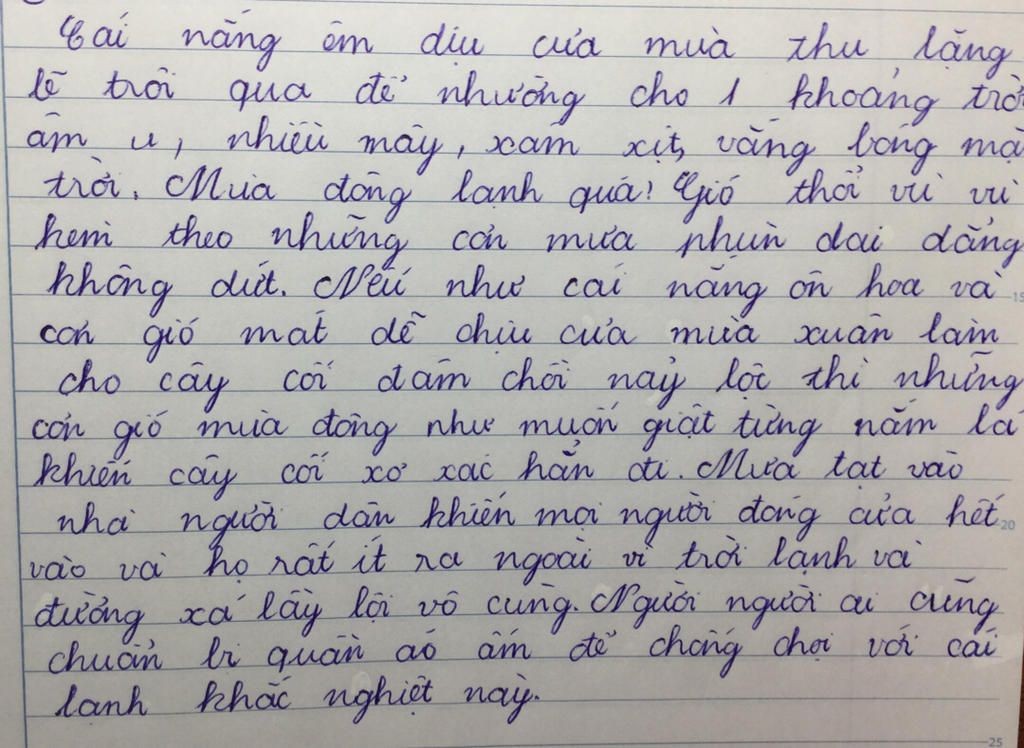 Cái nắng êm dịu của mùa thu lặng
lẽ trôi qua để nhường cho 1 khoảng trời
âm u, nhiều mây, xám xịt, vắng bóng mặ
trời. Mùa đông lạnh quá! Gió thổi vù vù
kèm theo những cơn mưa phùn dai dẳng
không dứt. Nếu như cái nắng ôn hoà và
15
cơn gió mát dễ chịu của mùa xuân làm
cho cây cối đâm chồi nảy lộc thì những
cơn gió mùa đông như muốn giật từng nắm lá
khiến cây cối xơ xác hẳn đi. Mưa tạt vào
nhà người dân khiến mọi người đóng cửa hết
20
vào và họ rất ít ra ngoài vì trời lạnh và
đường xá lầy lội vô cùng. Người người ai cũng
chuẩn bị quần áo ấm để chống chọi với cái
lạnh khắc nghiệt này.
25